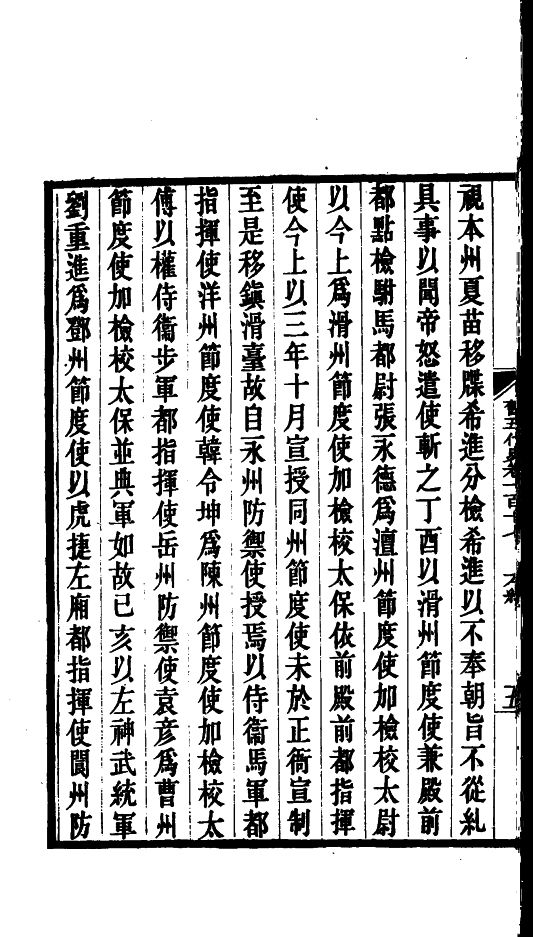 視本州夏苗移牒希進分檢希進以不奉朝旨不從糺
具事以聞帝怒遣使斬之丁酉以滑州節度使兼殿前
都點檢駙馬都尉張永德爲澶州節度使加檢校太尉
以今上爲滑州節度使加檢校太保依前殿前都指揮
使今上以三年十月宣授同州節度使未於正衙宣制
至是移鎭滑臺故自永州防禦使授焉以侍衞馬軍都
指揮使洋州節度使韓令坤爲陳州節度使加檢校太
傅以權侍衞步軍都指揮使岳州防禦使袁彦爲曹州
節度使加檢校太保並典軍如故己亥以左神武統軍
劉重進爲鄧州節度使以虎捷左廂都指揮使閬州防
舊五代史卷一百十七 本紀 五